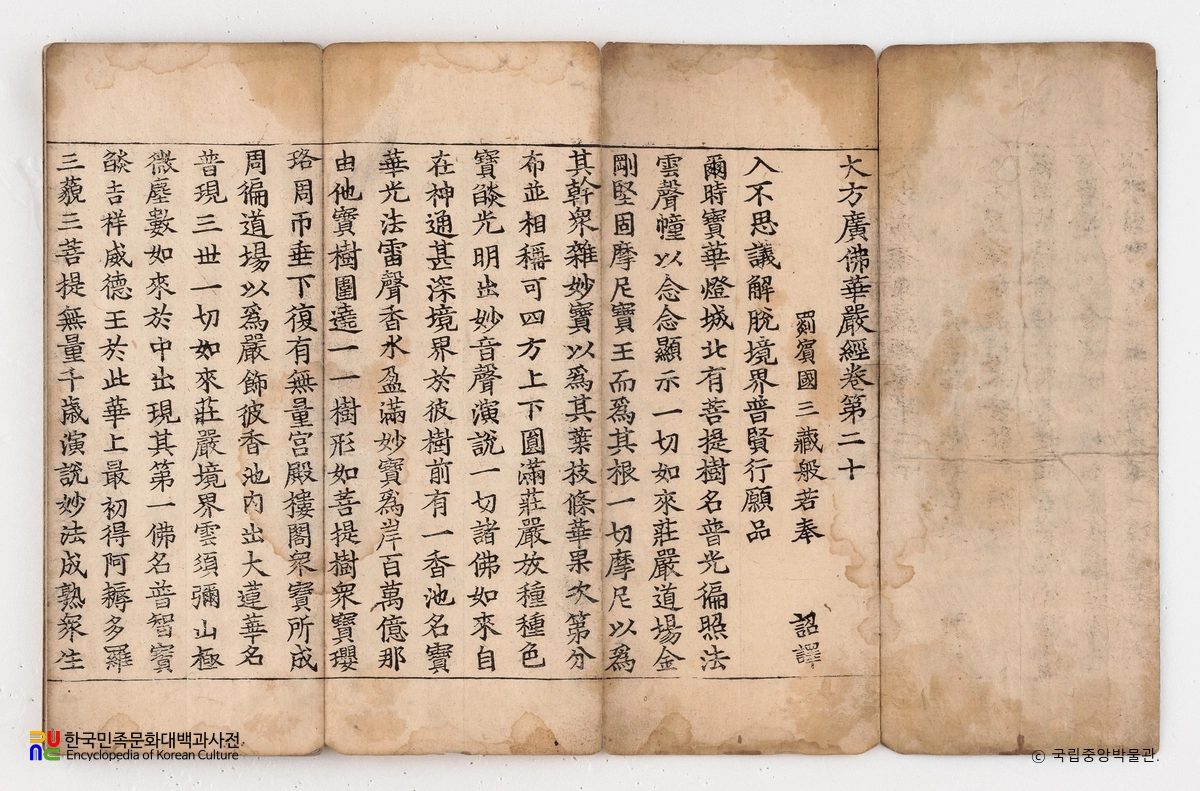 大方廣佛華嚴經卷第二十
罽賓國三藏般若奉 詔譯
入不思議解脫境界普賢行願品
爾時寶華燈城北有菩提樹名普光徧照法
雲聲幢以念念顯示一切如來莊嚴道場金
剛堅固摩尼寶王而爲其根一切摩尼以爲
其幹衆雜妙寶以爲其葉枝條華果次第分
布並相稱可四方上下圓滿莊嚴放種種色
寶燄光明出妙音聲演說一切諸佛如來自
在神通甚深境界於彼樹前有一香池名寶
華光法雷聲香水盈滿妙寶爲岸百萬億那
由他寶樹圍遶一一樹形如菩提樹衆寶瓔
珞周帀垂下復有無量宮殿樓閣衆寶所成
周徧道場以爲嚴飾彼香池內出大蓮華名
普現三世一切如來莊嚴境界雲須彌山極
微塵數如來於中出現其第一佛名普智寶
燄吉祥威德王於此華上最初得阿耨多羅
三藐三菩提無量千歲演說妙法成熟衆生
한국민족문화대백과사전
Encyclopedia of Korean Culture
© 국립중앙박물관.